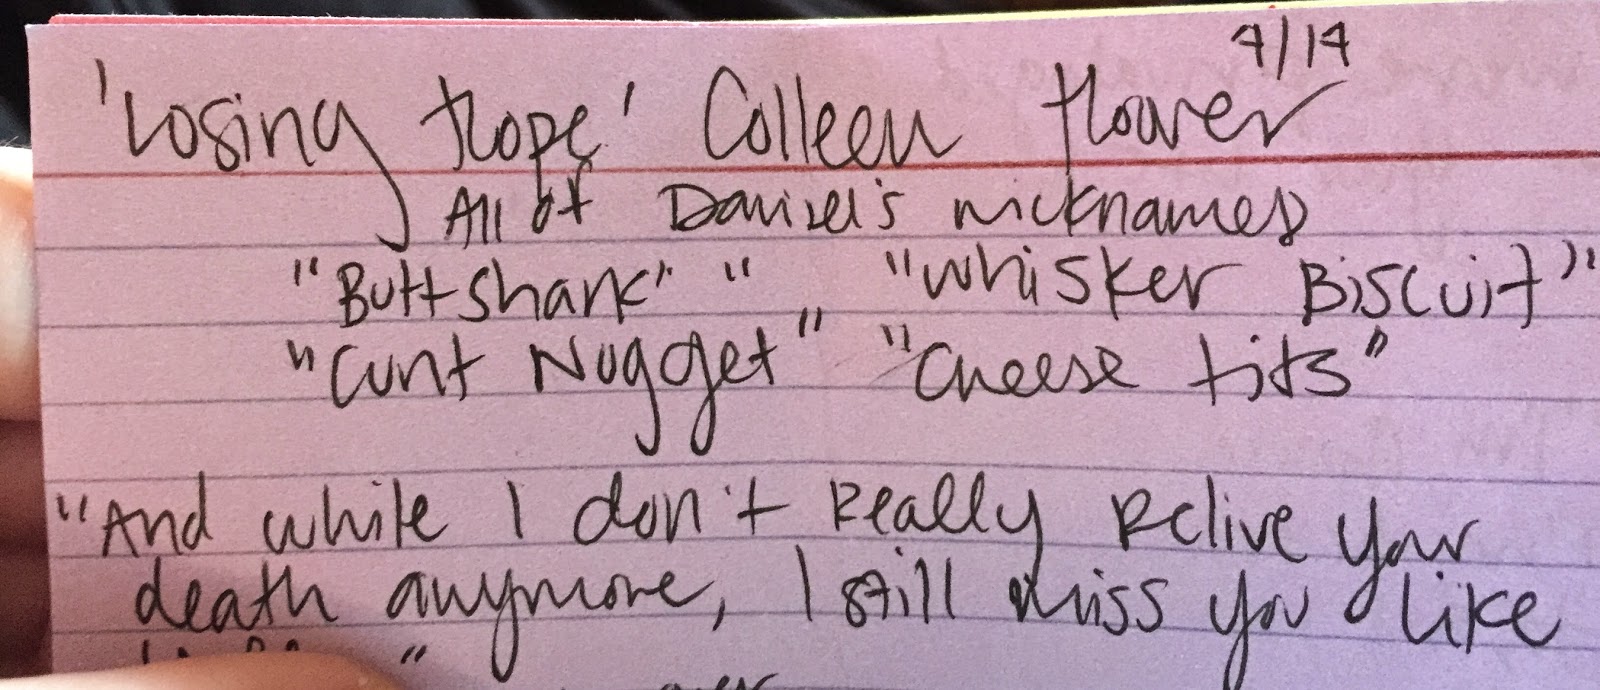 4/14
'Losing Hope' Colleen Hoover
All of Daniel's nicknames
"Buttshark" " "Whisker Biscuit"
"Cunt Nugget" "Cheese tits"
"And while I don't really relive your
death anymore, I still miss you like